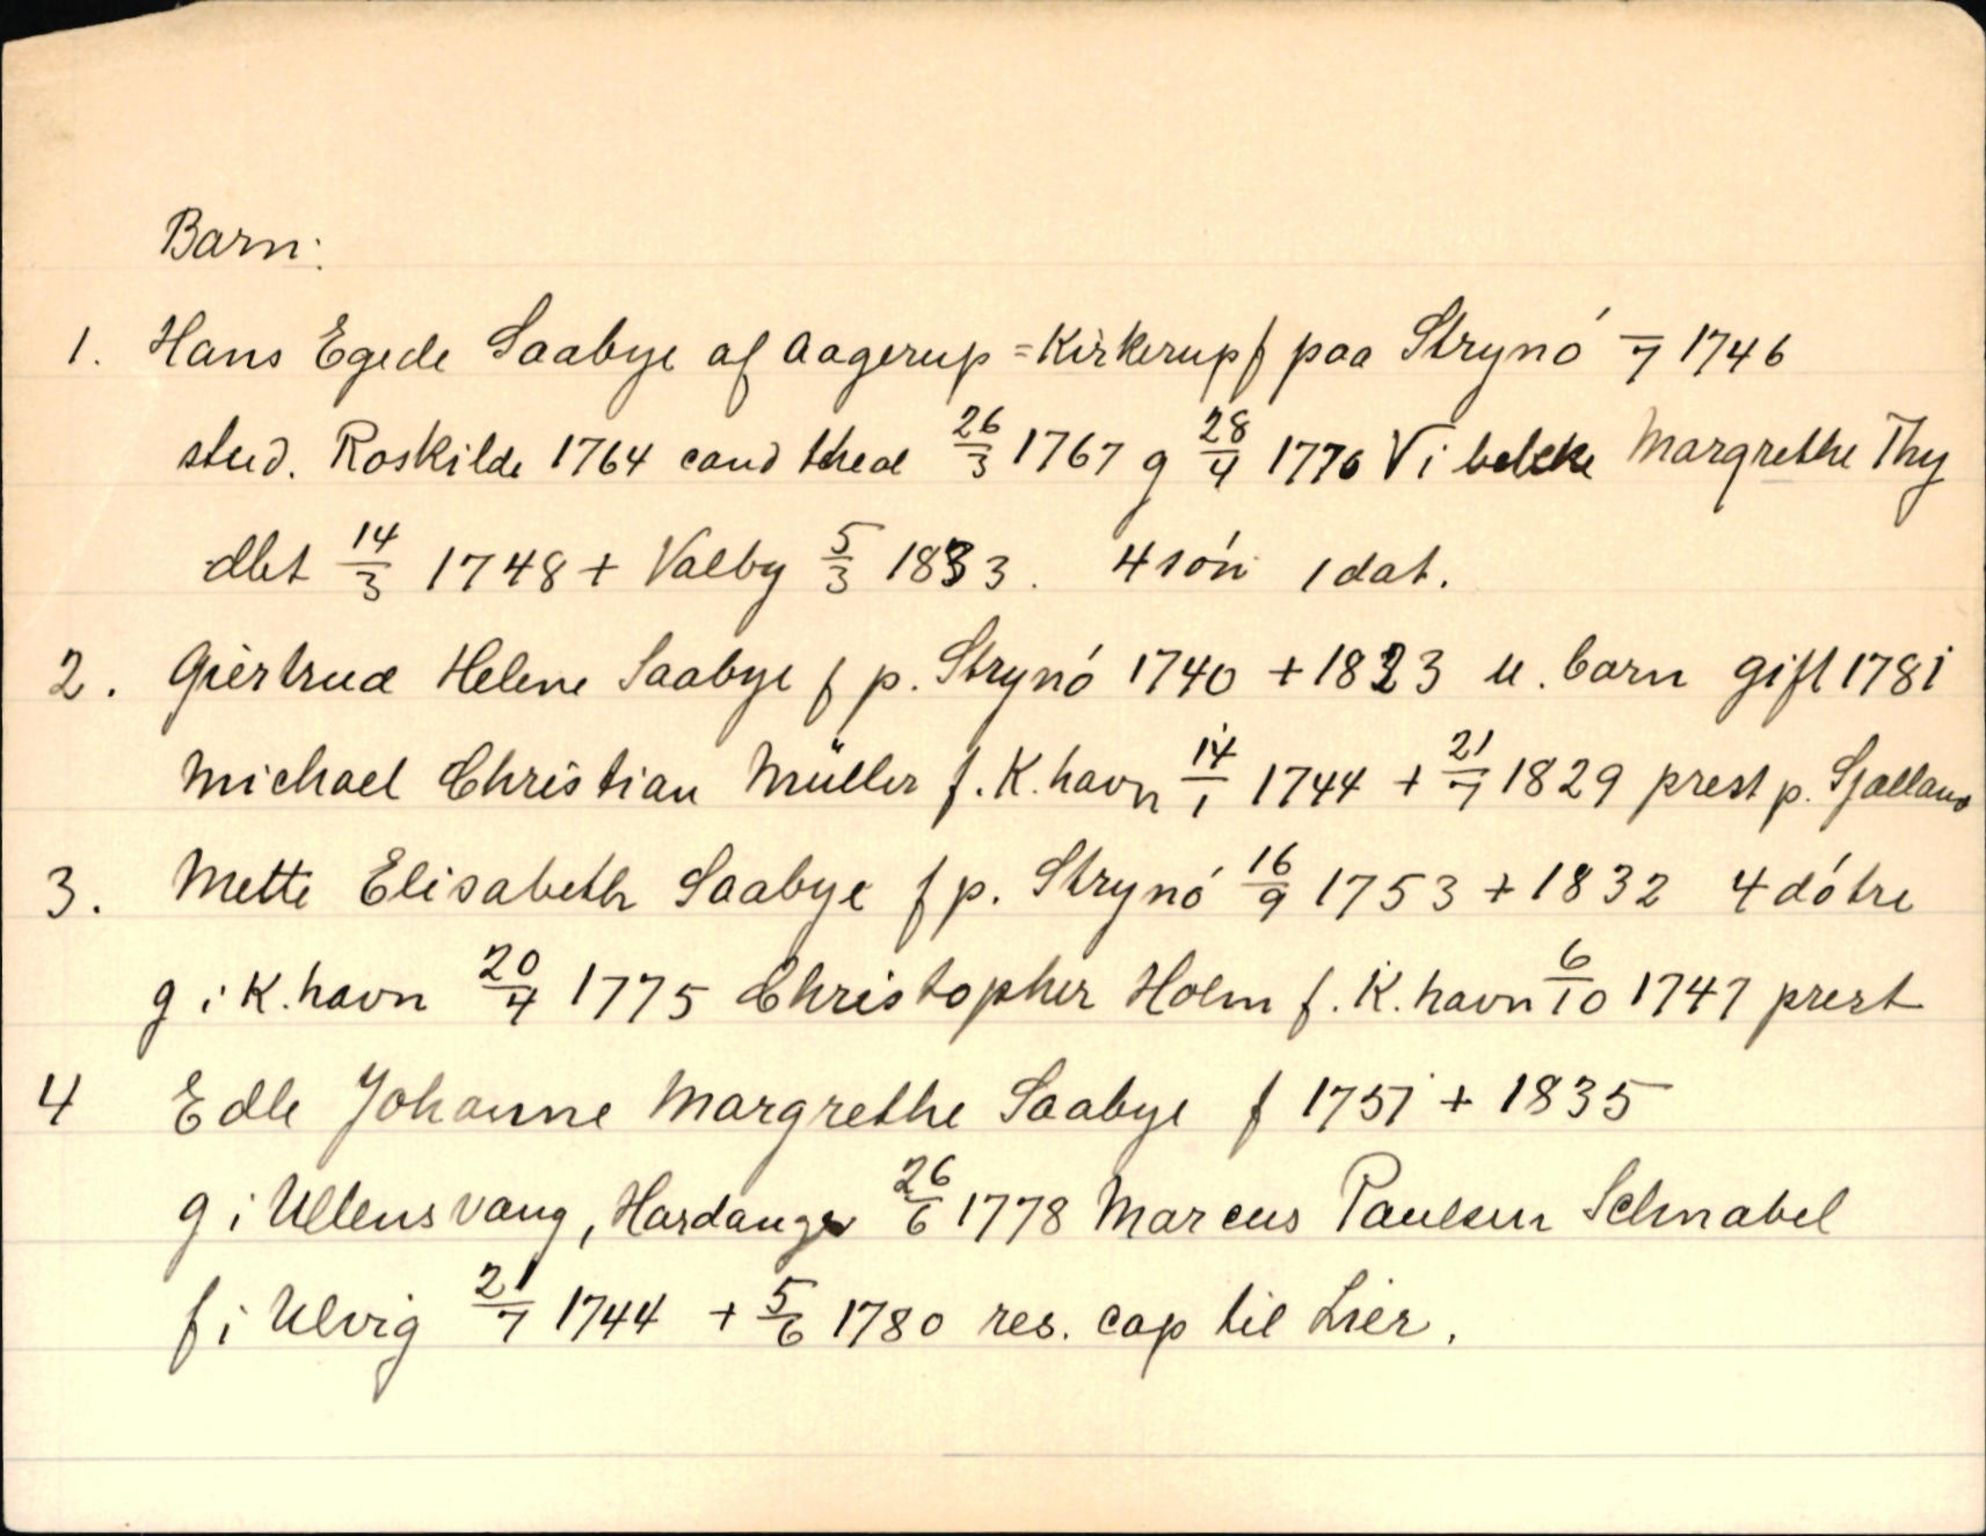 Barn:
1. Hans Egede Saabye af Aagerup=Kirkerup f paa Strynó –/7 1746
stud. Roskilde 1764 cand theol 26/3 1767 g 28/4 1770 Vibeke Margrethe Thy
dbt 14/3 1748 + Valby 5/3 1833. 4 són 1 dat.
2. Giertrud Helene Saabye f p. Strynó 1740 + 1823 u. barn gift 1781
Michael Christian Müller f. K.havn 14/1 1744 + 21/7 1829 prest p. Sjælland
3. Mette Elisabeth Saabye f p. Strynó 16/9 1753 + 1832 4 dótre
g i K.havn 20/4 1775 Christopher Holm f. K.havn 6/10 1747 prest
4 Edle Johanne Margrethe Saabye f 1751 + 1835
g i Ullensvang, Hardanger 26/6 1778 Marcus Paulsen Schnabel
f i Ulvig 21/7 1744 + 5/6 1780 res. cap til Lier.